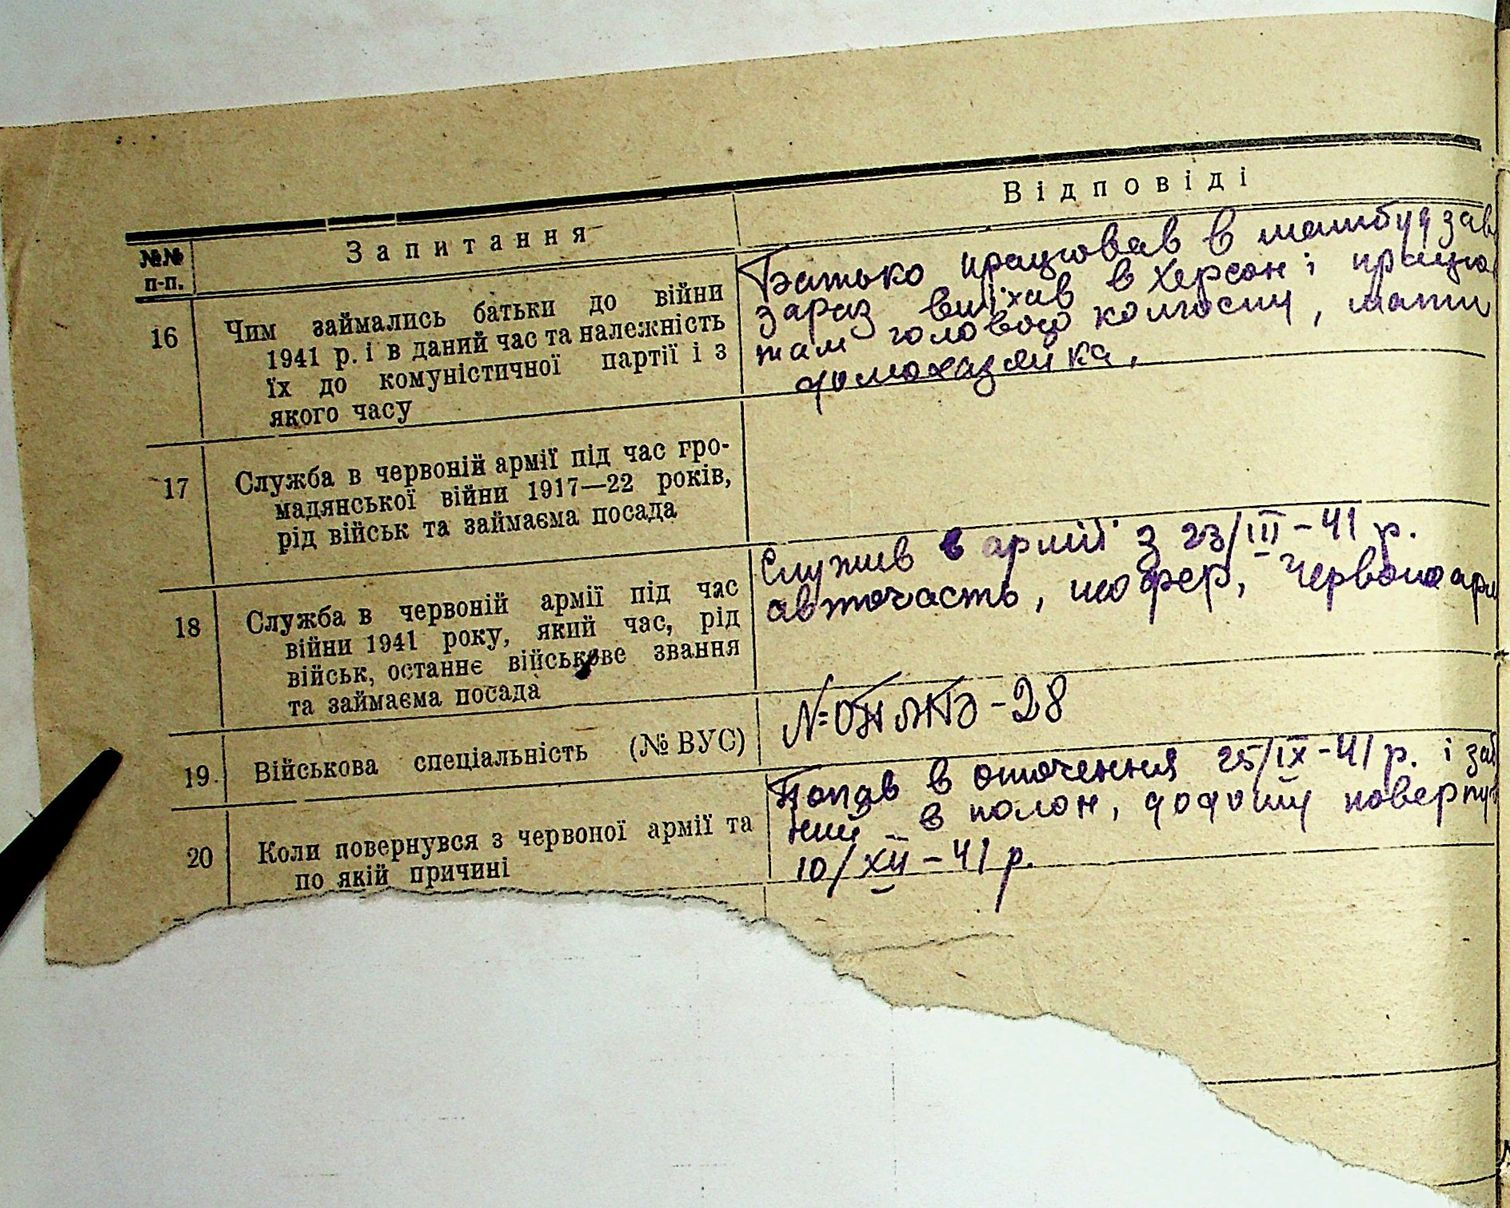 Відповіді
№№ п-п.
Запитання
16
Чим займались батьки до війни
1941 р. і в даний час та належність
їх до комуністичної партії і з
якого часу
Батько працював в машбуд зав
зараз виїхав в Херсон і працю
там головою колгоспу, мати
домохазяйка.
17
Служба в червоній армії під час гро-
мадянської війни 1917—22 років,
рід військ та займаєма посада
18
Служба в червоній армії під час
війни 1941 року, який час, рід
військ, останнє військове звання
та займаєма посада
Служив в армії з 23/III-41 р.
авточасть, шофер, червоноарм
19
Військова спеціальність (№ ВУС)
-28
20
Коли повернувся з червоної армії та
по якій причині
Попав в оточення 25/IX-41 р. і заб
ний в полон, додому поверну
10/XII-41 р.